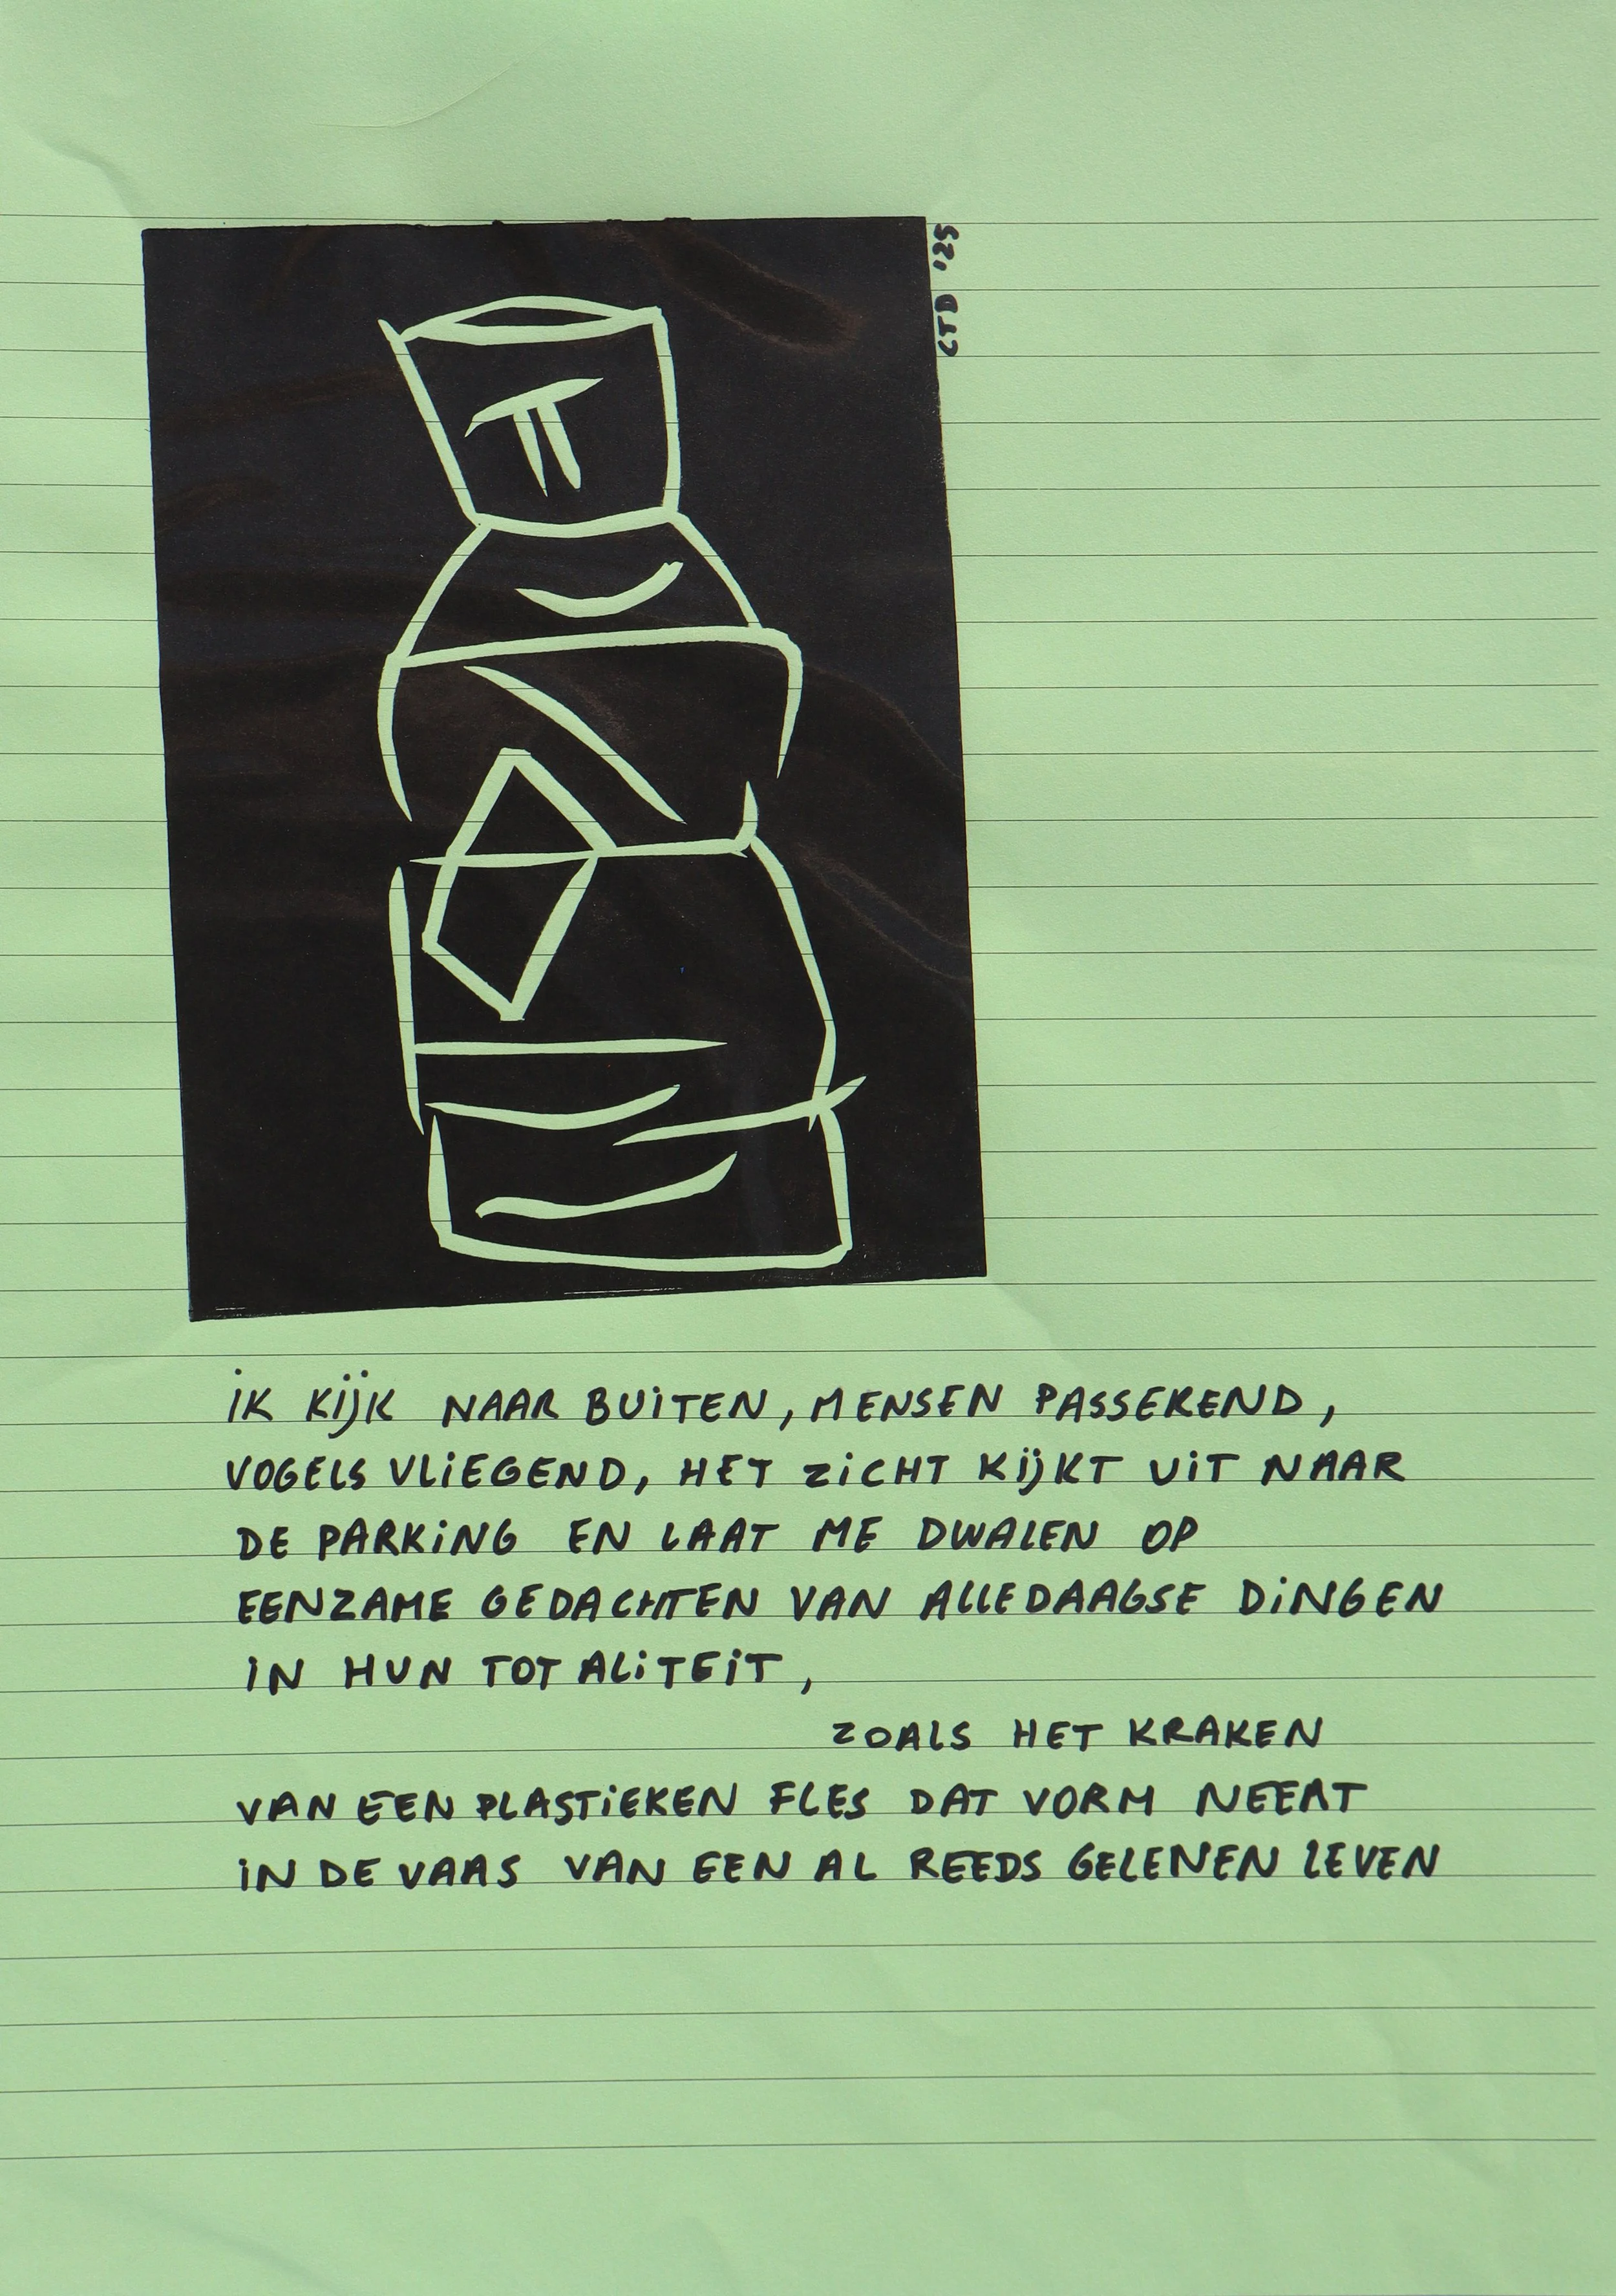 CTD '25
iK KijK NAAR BUiTEN, MENSEN PASSEREND,
VOGELS VLiEGEND, HET ZiCHT KijKT UiT NAAR
DE PARKiNG EN LAAT ME DWALEN OP
EENZAME GEDACHTEN VAN ALLEDAAGSE DiNGEN
iN HUN TOTALiTEiT,
ZOALS HET KRAKEN
VAN EEN PLASTiEKEN FLES DAT VORM NEEMT
iN DE VAAS VAN EEN AL REEDS GELENEN LEVEN